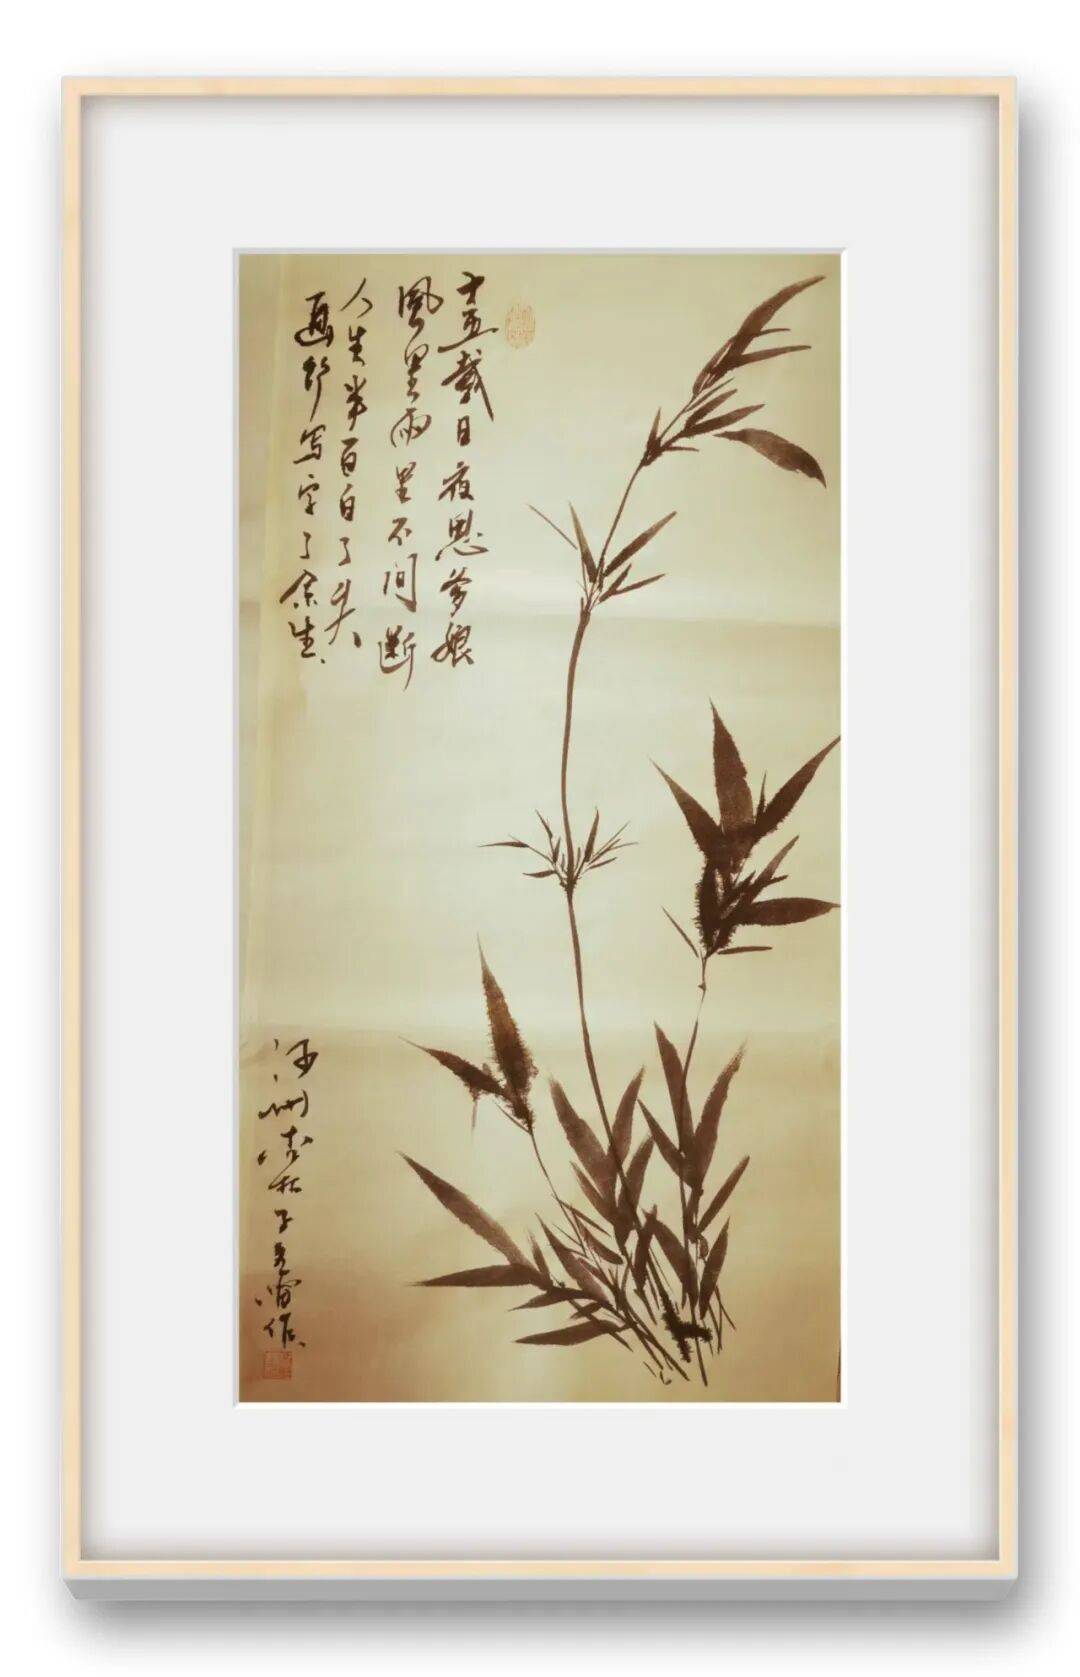 十五载日夜思爹娘
風里雨里不间断
人生半百白了头
画竹写字了余生
河州
作